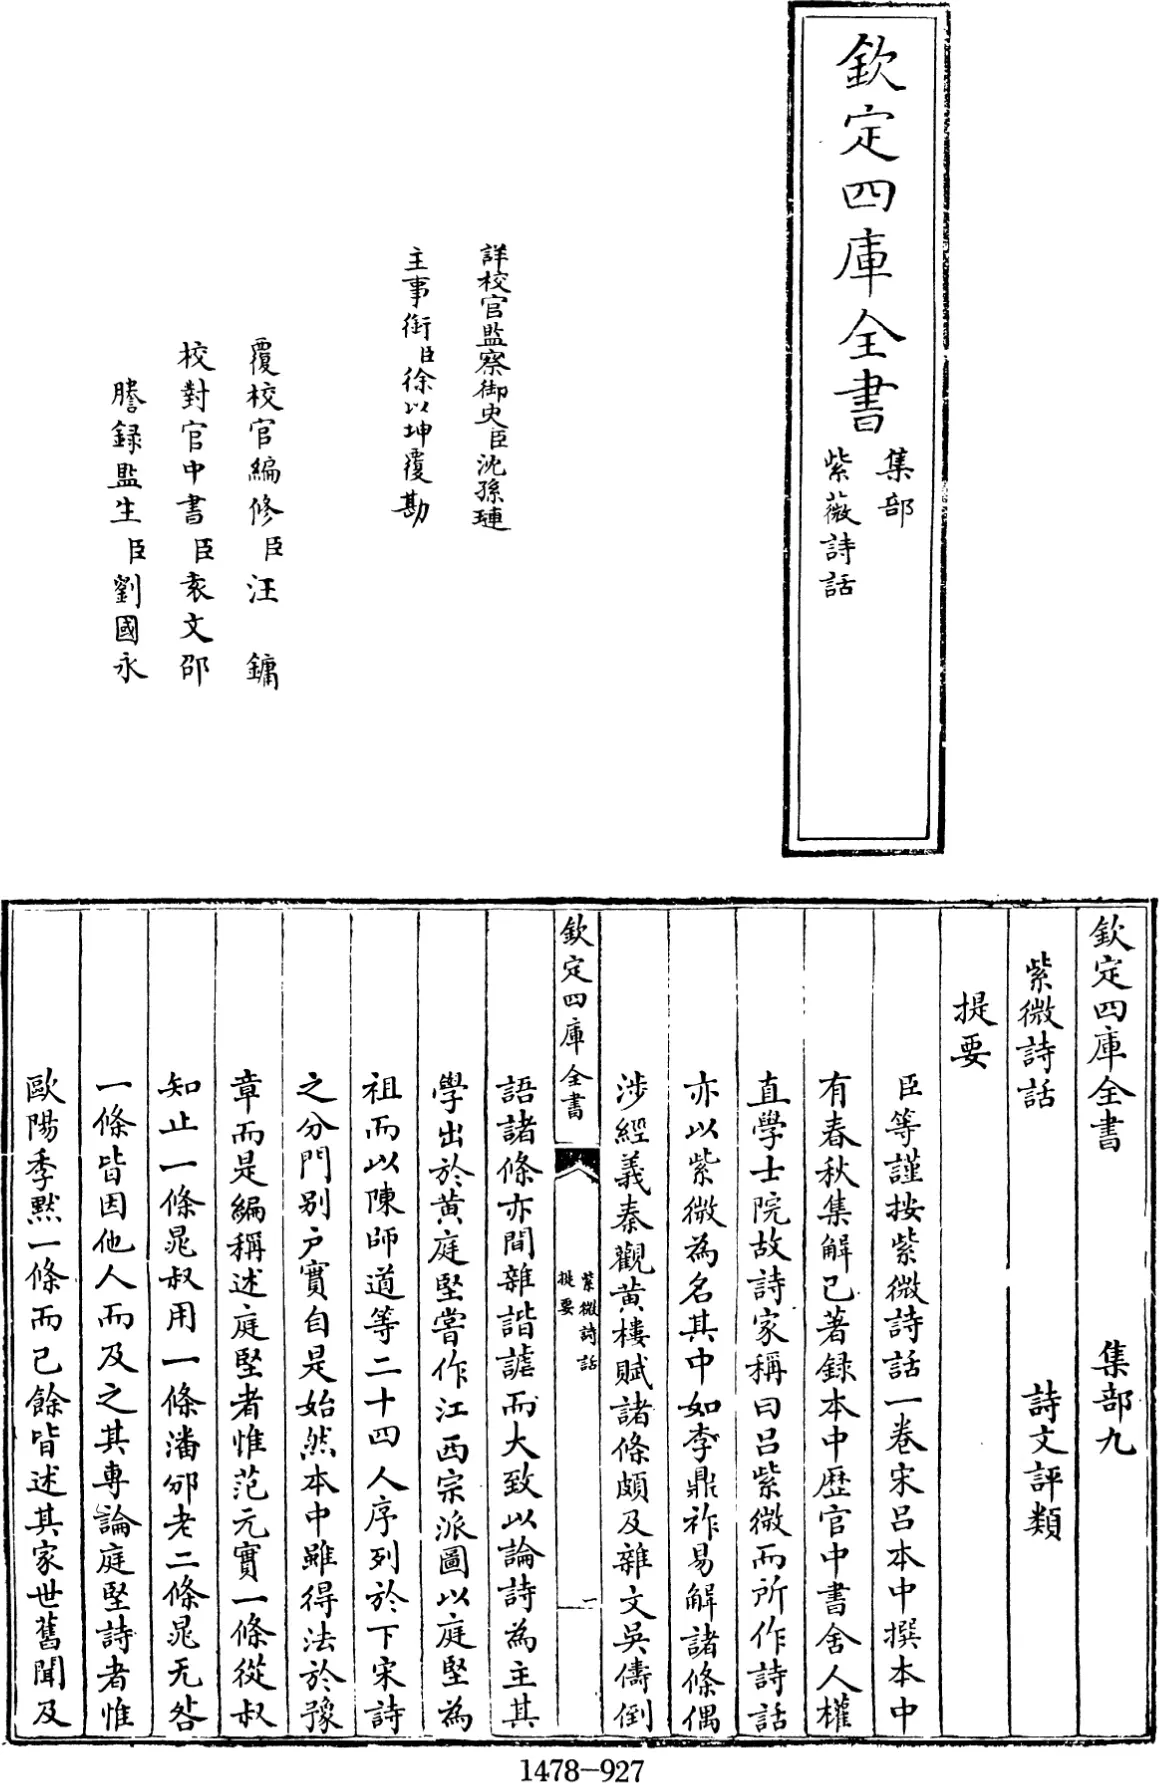 欽定四庫全書
集部
紫薇詩話
詳校官監察御史臣沈孫璉
主事銜臣徐以坤覆勘
覆校官編修臣汪鏞
校對官中書臣袁文邵
謄錄監生臣劉國永
欽定四庫全書 集部九
紫微詩話 詩文評類
提要
臣等謹按紫微詩話一卷宋呂本中撰本中
有春秋集解已著録本中歴官中書舍人權
直學士院故詩家稱曰呂紫微而所作詩話
亦以紫微為名其中如李鼎祚易解諸條偶
涉經義秦觀黄樓賦諸條頗及雜文吳儔倒
欽定四庫全書
紫微詩話
提要
一
語諸條亦間雜諧謔而大致以論詩為主其
學出於黄庭堅嘗作江西宗派圖以庭堅為
祖而以陳師道等二十四人序列於下宋詩
之分門别户實自是始然本中雖得法於豫
章而是編稱述庭堅者惟范元實一條從叔
知止一條晁叔用一條潘邠老二條晁无咎
一條皆因他人而及之其專論庭堅詩者惟
歐陽季黙一條而已餘皆述其家世舊聞及
1478-927